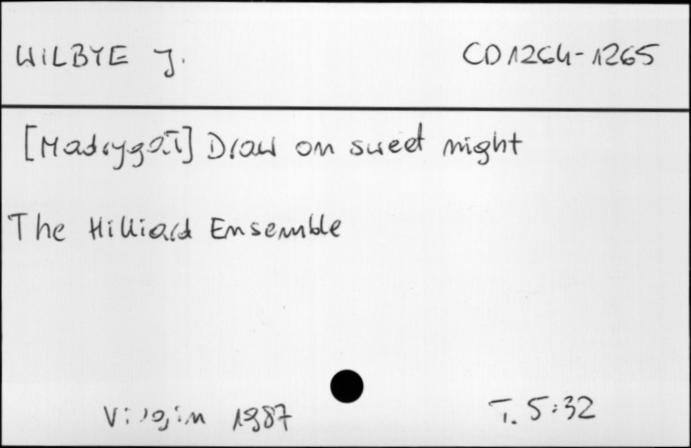 WILBYE J. CD 1264-1265
[Madrygał] Draw on sweet night
The Hilliard Ensemble
Virgin 1987 T. 5:32